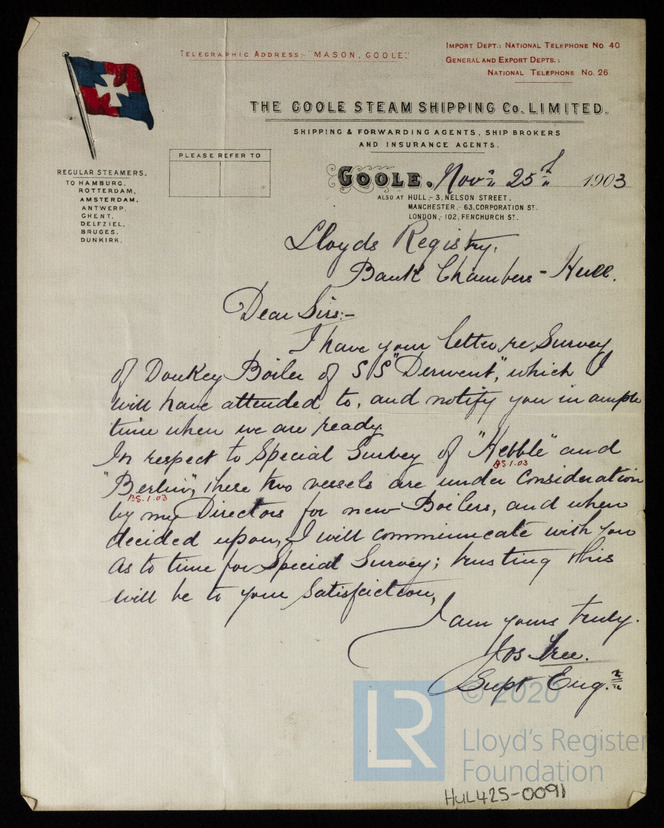 TELEGRAPHIC ADDRESS:- "MASON, GOOLE."
IMPORT DEPT.: NATIONAL TELEPHONE No. 40
GENERAL AND EXPORT DEPTS.:
NATIONAL TELEPHONE No. 26
THE GOOLE STEAM SHIPPING Co. LIMITED.
SHIPPING & FORWARDING AGENTS, SHIP BROKERS
AND INSURANCE AGENTS.
PLEASE REFER TO
REGULAR STEAMERS.
TO HAMBURG.
ROTTERDAM,
AMSTERDAM.
ANTWERP,
GHENT.
DELFZIEL,
BRUGES.
DUNKIRK.
GOOLE. Novr 25th 1903
ALSO AT HULL,- 3, NELSON STREET.
MANCHESTER,- 63, CORPORATION ST.
LONDON,- 102, FENCHURCH ST.
Lloyds Registry,
Bank Chambers - Hull.
Dear Sirs:-
I have your letter re Survey
of Donkey Boiler of SS "Derwent", which I
will have attended to, and notify you in ample
time when we are ready.
In respect to Special Survey of "Hebble" and
BS.1.03
"Berlin", these two vessels are under consideration
BS.1.03
by my Directors for new Boilers, and when
decided upon, I will communicate with you
as to time for Special Survey; trusting this
will be to your satisfaction,
I am yours truly.
Jos Tree.
Supt Engr
© 2020
LR
Lloyd's Register
Foundation
HUL425-0091